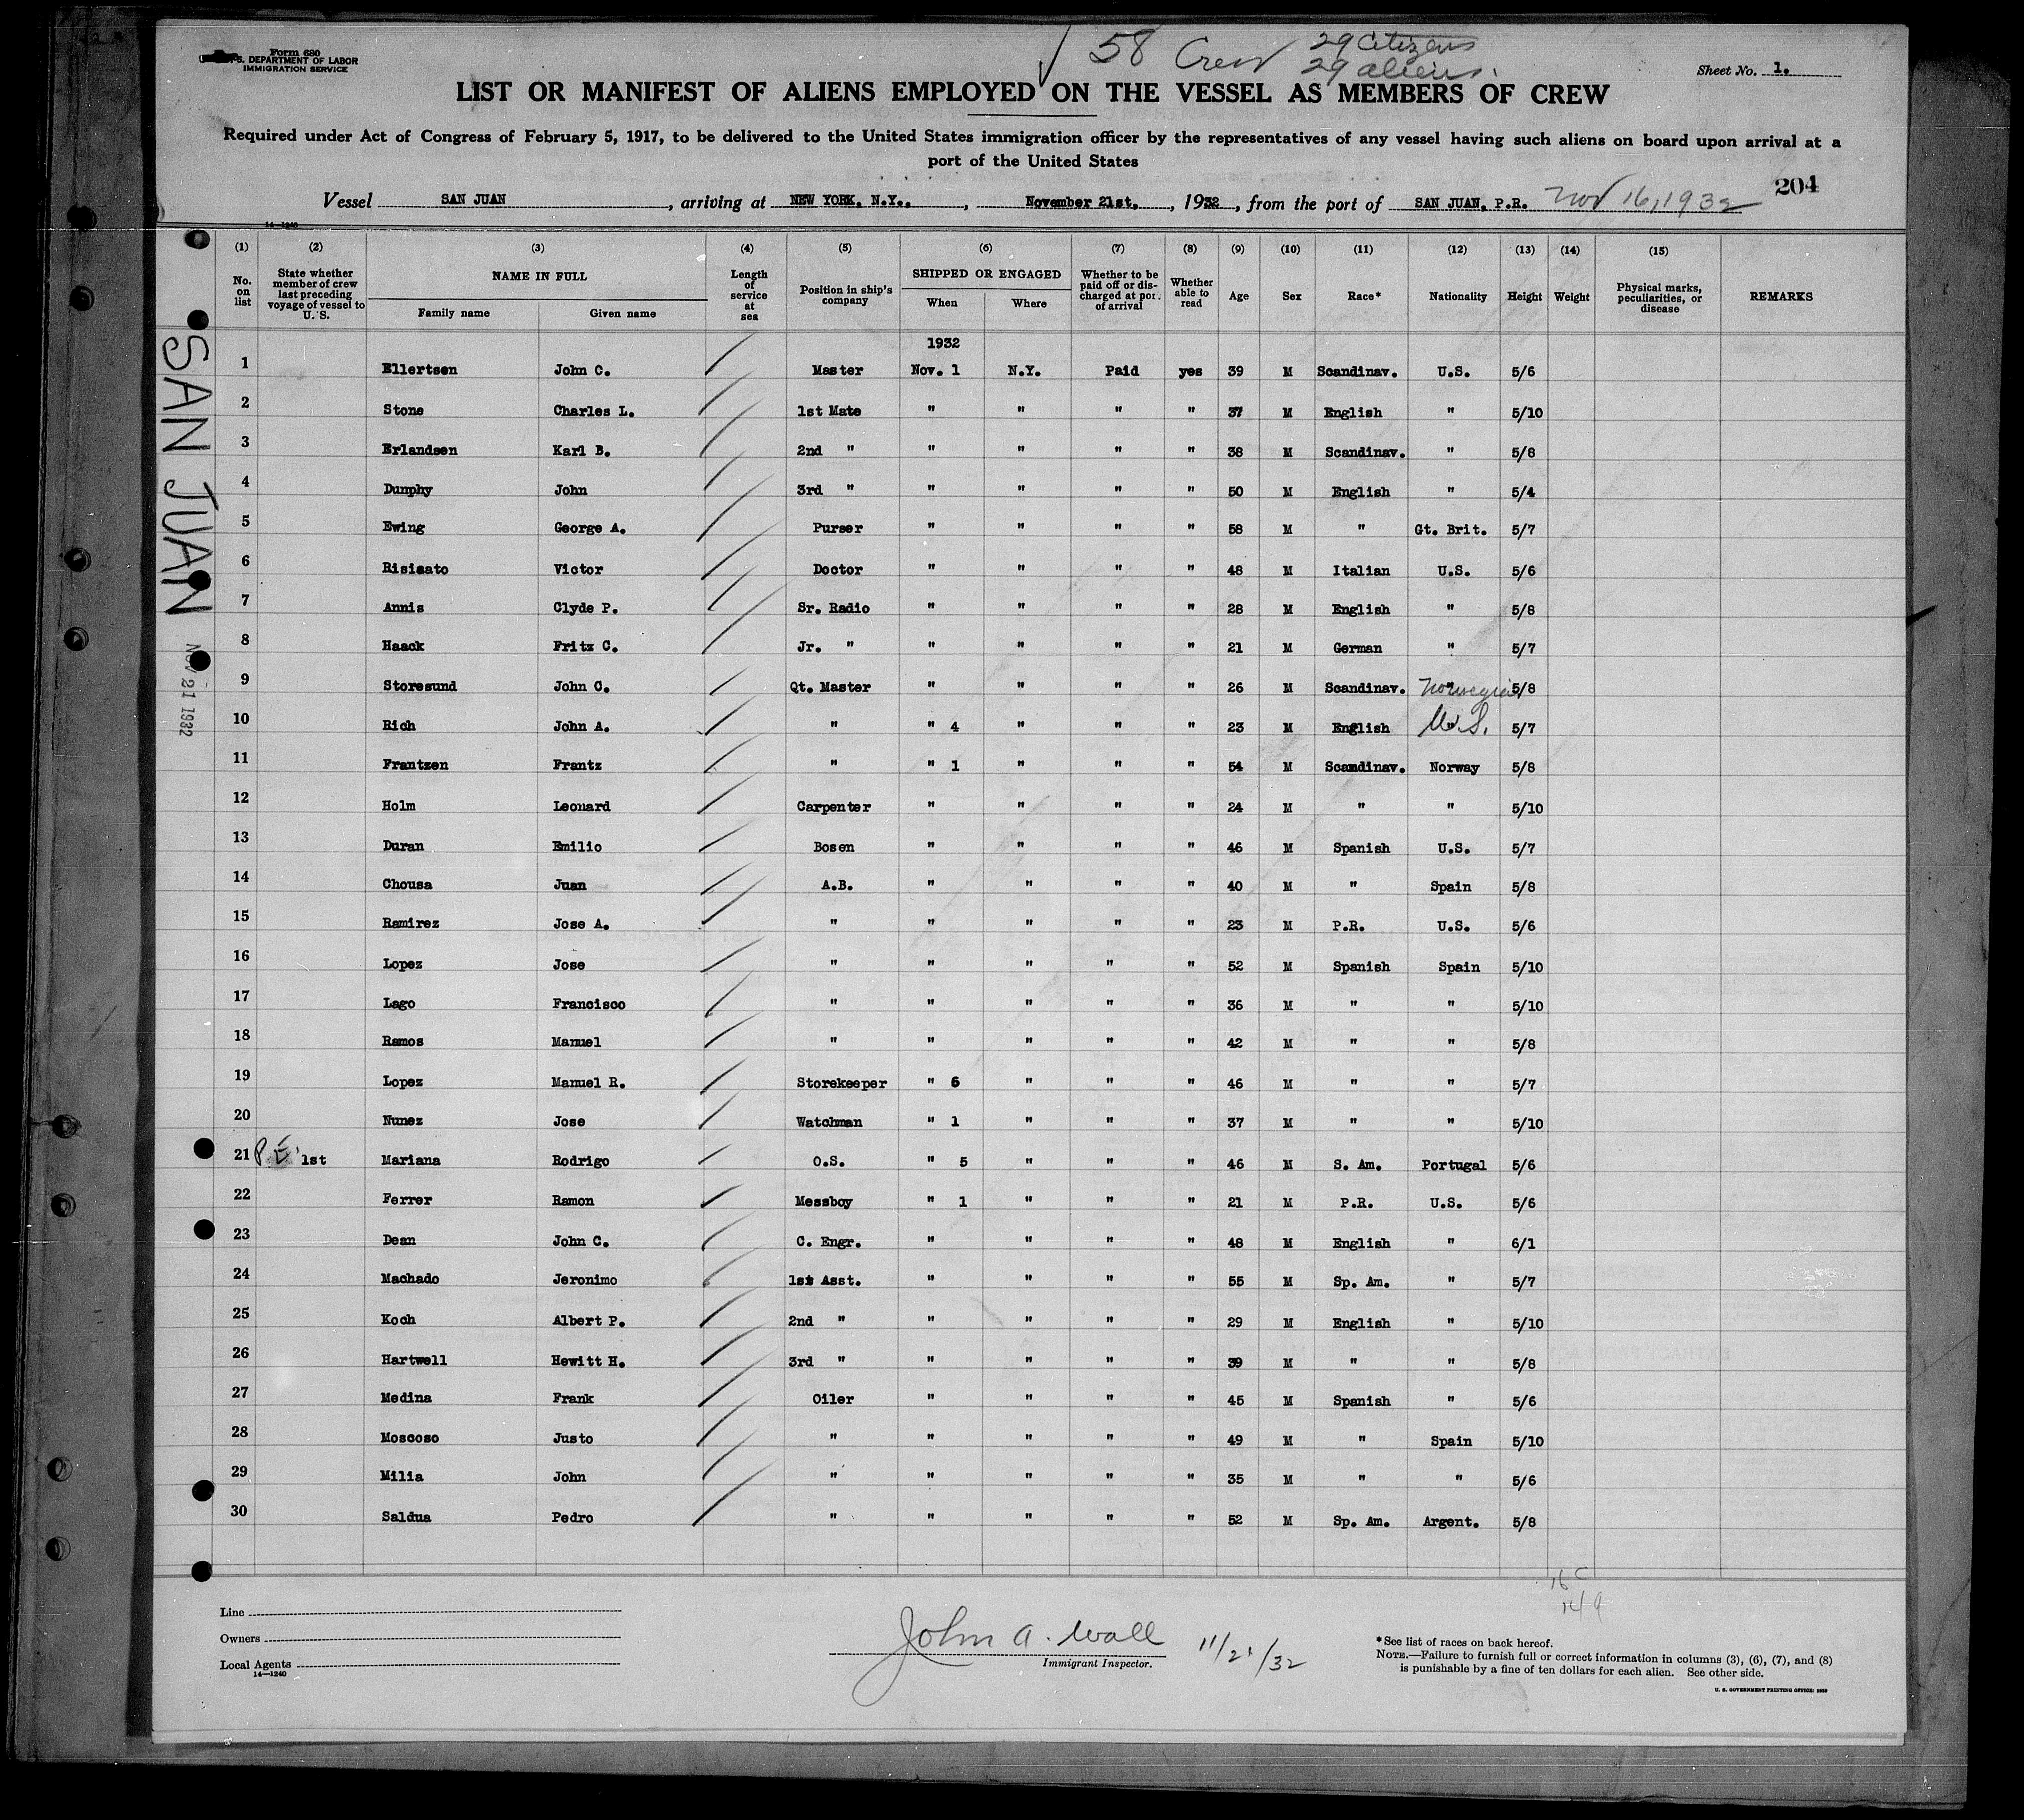 Form 680
U. S. DEPARTMENT OF LABOR
IMMIGRATION SERVICE
58 Crew 29 Citizens
29 aliens.
Sheet No. 1.
LIST OR MANIFEST OF ALIENS EMPLOYED ON THE VESSEL AS MEMBERS OF CREW
Required under Act of Congress of February 5, 1917, to be delivered to the United States immigration officer by the representatives of any vessel having such aliens on board upon arrival at a
port of the United States
204
Vessel SAN JUAN, arriving at NEW YORK, N.Y., November 21st, 1932, from the port of SAN JUAN, P.R. Nov 16, 1932
14—1240
(1) (2) (3) (4) (5) (6) (7) (8) (9) (10) (11) (12) (13) (14) (15)
No. on list State whether member of crew last preceding voyage of vessel to U. S. NAME IN FULL Family name Given name Length of service at sea Position in ship's company SHIPPED OR ENGAGED When Where Whether to be paid off or discharged at port of arrival Whether able to read Age Sex Race* Nationality Height Weight Physical marks, peculiarities, or disease REMARKS
1932
1 Ellertsen John C. Master Nov. 1 N.Y. Paid yes 39 M Scandinav. U.S. 5/6
2 Stone Charles L. 1st Mate " " " " 37 M English " 5/10
3 Erlandsen Karl B. 2nd " " " " " 38 M Scandinav. " 5/8
4 Dunphy John 3rd " " " " " 50 M English " 5/4
5 Ewing George A. Purser " " " " 58 M " Gt. Brit. 5/7
6 Risicato Victor Doctor " " " " 48 M Italian U.S. 5/6
7 Annis Clyde P. Sr. Radio " " " " 28 M English " 5/8
8 Haack Fritz C. Jr. " " " " " 21 M German " 5/7
9 Storesund John C. Qt. Master " " " " 26 M Scandinav. Norwegian 5/8
10 Rich John A. " " 4 " " " 23 M English U.S. 5/7
11 Frantzen Frantz " " 1 " " " 54 M Scandinav. Norway 5/8
12 Holm Leonard Carpenter " " " " 24 M " " 5/10
13 Duran Emilio Bosen " " " " 46 M Spanish U.S. 5/7
14 Chousa Juan A.B. " " " " 40 M " Spain 5/8
15 Ramirez Jose A. " " " " " 23 M P.R. U.S. 5/6
16 Lopez Jose " " " " " 52 M Spanish Spain 5/10
17 Lago Francisco " " " " " 36 M " " 5/10
18 Ramos Manuel " " " " " 42 M " " 5/8
19 Lopez Manuel R. Storekeeper " 6 " " " 46 M " " 5/7
20 Nunez Jose Watchman " 1 " " " 37 M " " 5/10
21 P.E. 1st Mariana Rodrigo O.S. " 5 " " " 46 M S. Am. Portugal 5/6
22 Ferrer Ramon Messboy " 1 " " " 21 M P.R. U.S. 5/6
23 Dean John C. C. Engr. " " " " 48 M English " 6/1
24 Machado Jeronimo 1st Asst. " " " " 55 M Sp. Am. " 5/7
25 Koch Albert P. 2nd " " " " " 29 M English " 5/10
26 Hartwell Hewitt H. 3rd " " " " " 39 M " " 5/8
27 Medina Frank Oiler " " " " 45 M Spanish " 5/6
28 Moscoso Justo " " " " " 49 M " Spain 5/10
29 Milia John " " " " " 35 M " " 5/6
30 Saldua Pedro " " " " " 52 M Sp. Am. Argent. 5/8
SAN JUAN
NOV 21 1932
16 C
14 a
Line
Owners
Local Agents
14—1240
John A. Wall 11/21/32
Immigrant Inspector.
*See list of races on back hereof.
NOTE.—Failure to furnish full or correct information in columns (3), (6), (7), and (8)
is punishable by a fine of ten dollars for each alien. See other side.